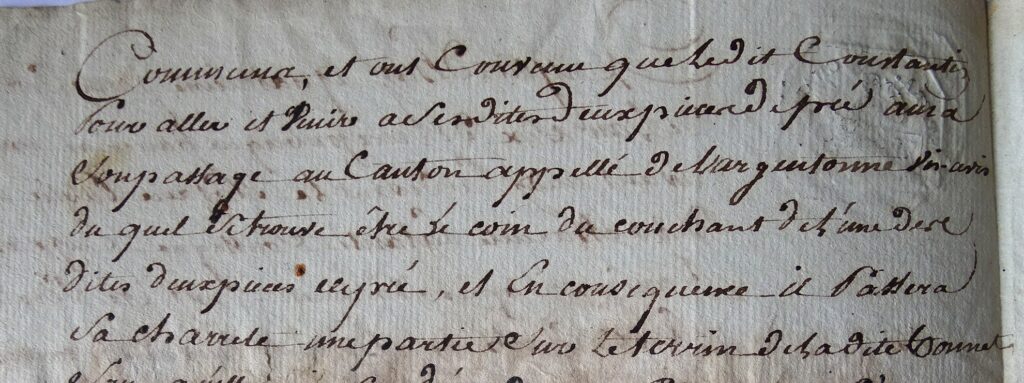 Commune, et ont Convenu que ledit Constantin
Pour aller et Venir a Sesdites deux pieces de pré aura
Son passage au Canton appellé de Largentonne Vis-avis
du quel Se trouve être Le coin du couchant de L'une de se
dites deux pieces de pré, et En consequence il Passera
Sa charrete une partie Sur Le terrin de Ladite Connet